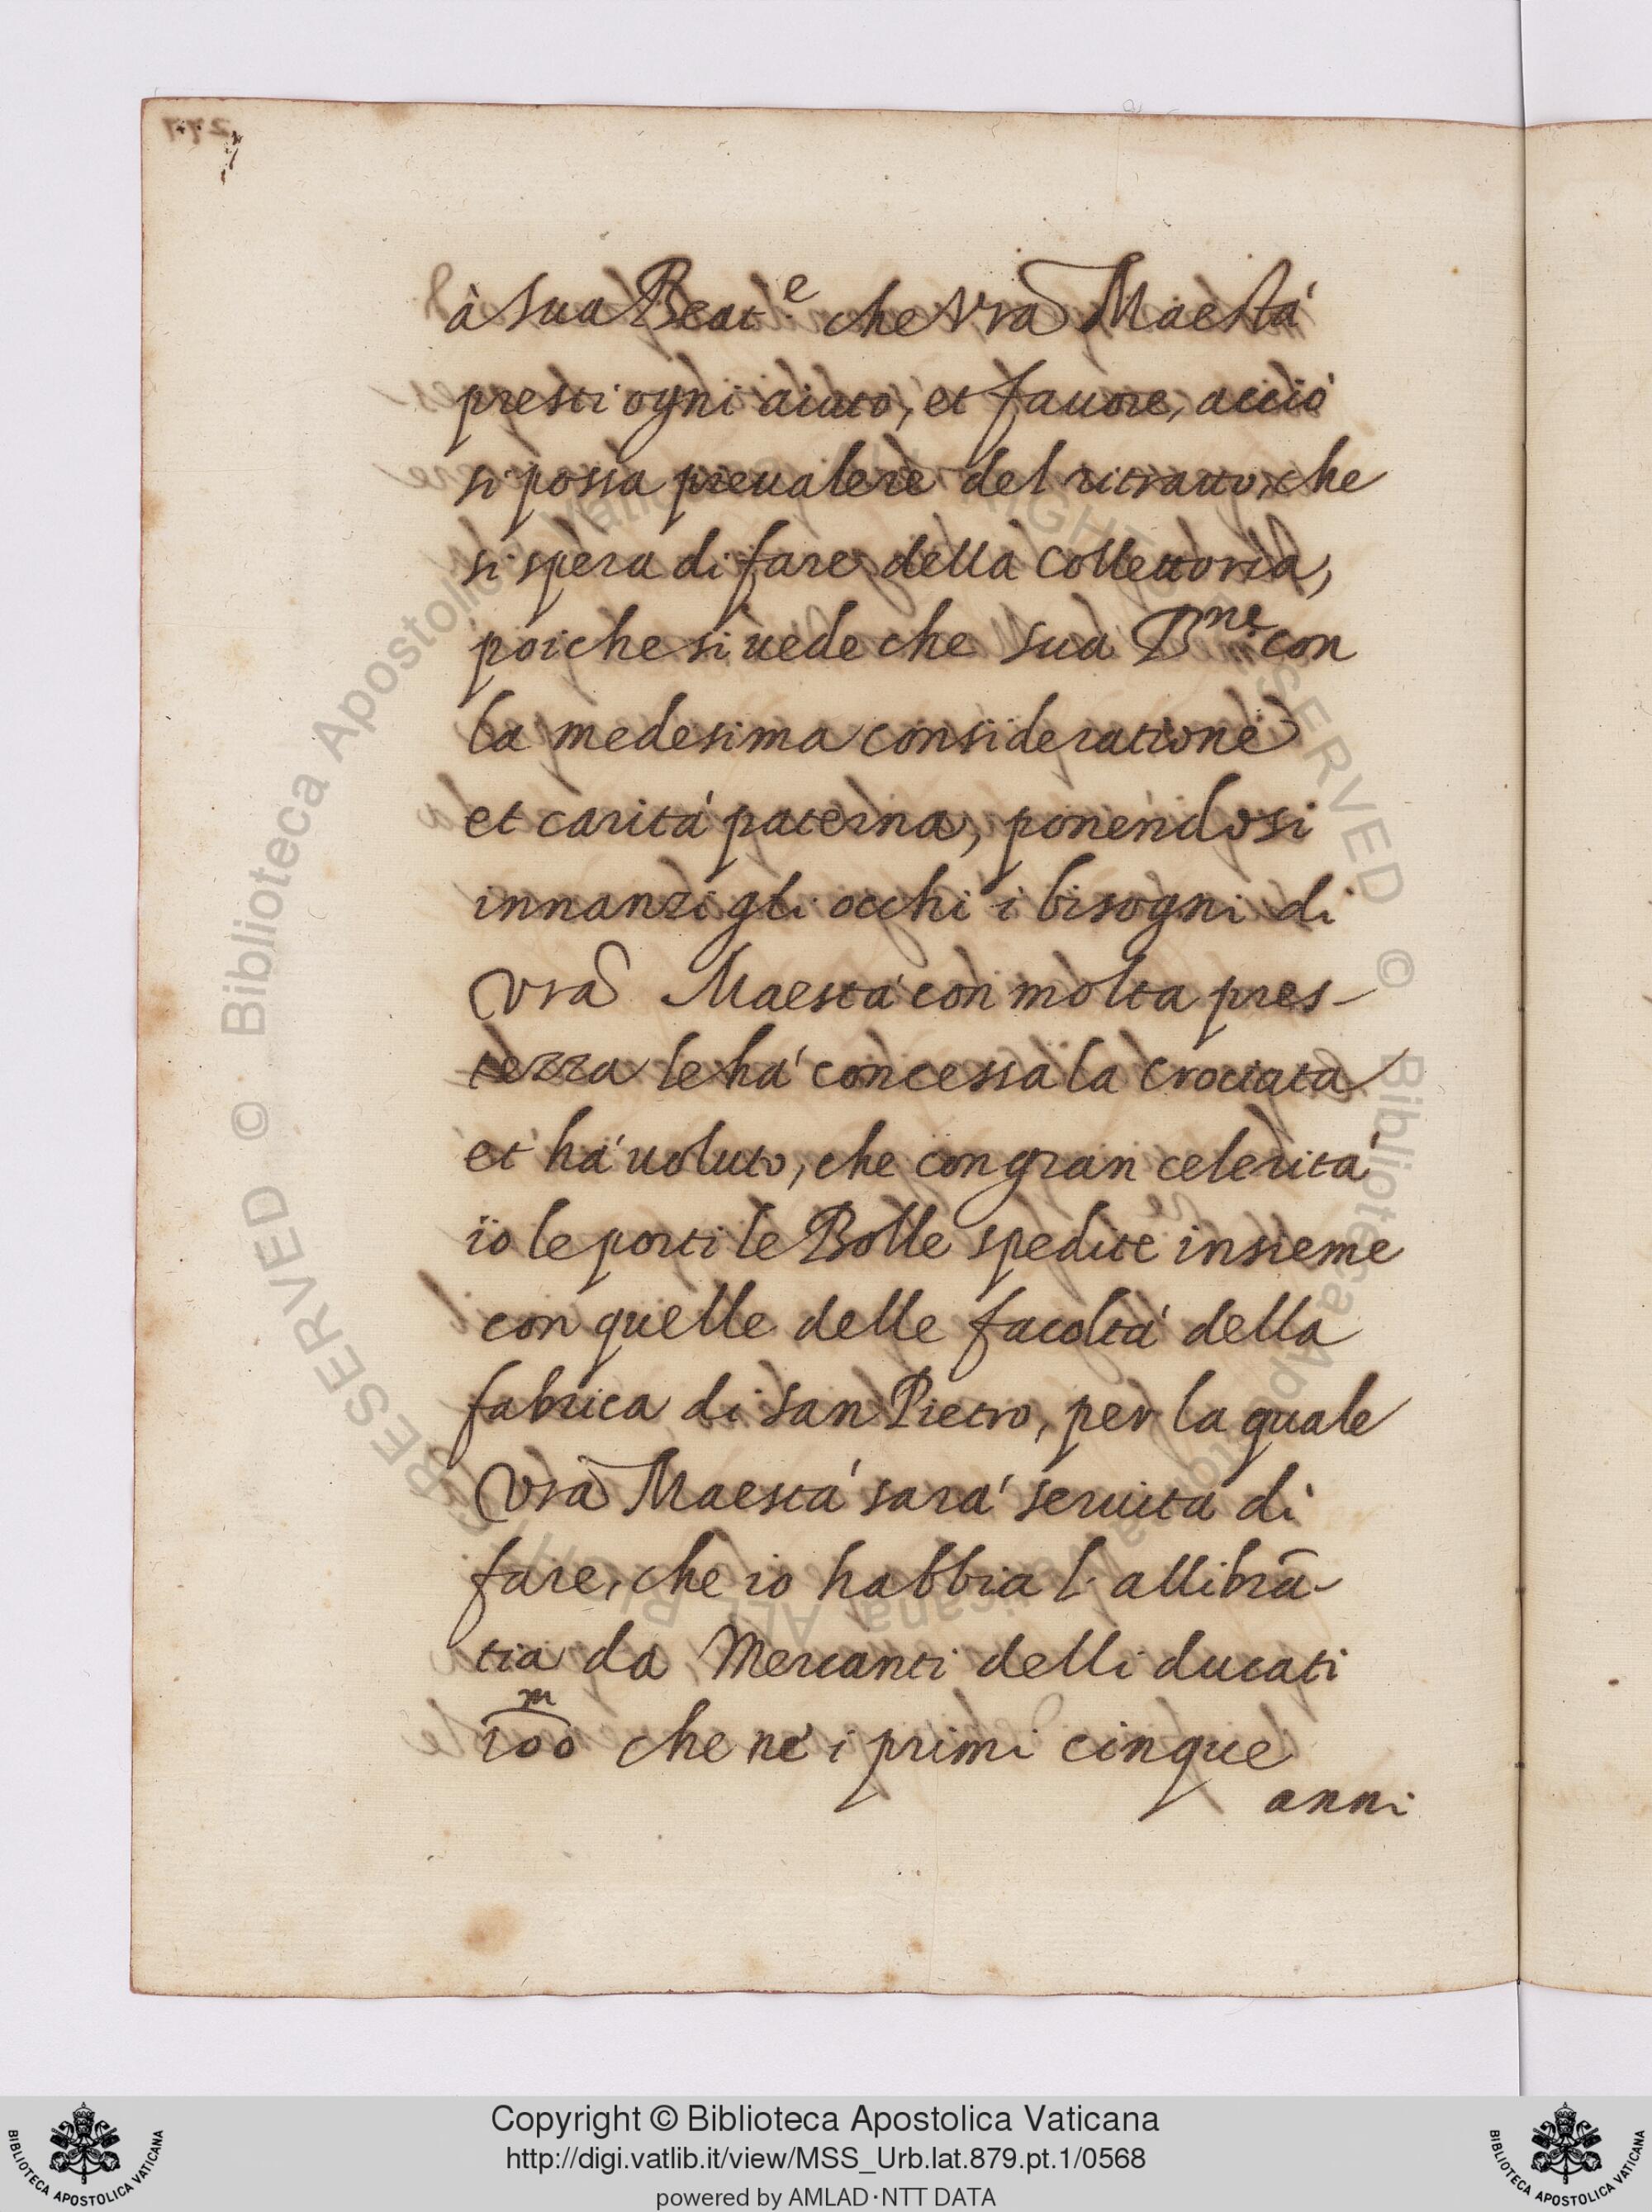 à sua Beat.e che Vra Maestá
presti ogni aiuto, et fauore, acciò
si possa preualere del ritratto, che
si spera di fare della Collettoria,
poiche si uede che sua B.ne con
la medesima consideratione
et caritá paterna, ponendosi
innanzi gli occhi i bisogni di
Vra Maestá con molta pres-
tezza le há concessa la Crociata
et há uoluto, che con gran celeritá
io le porti le Bolle spedite insieme
con quelle delle facoltá della
fabrica di San Pietro, per la quale
Vra Maestá sará seruita di
fare, che io habbia l'allibrã-
tia da Mercanti delli ducati
100m che né i primi cinque
anni
Copyright © Biblioteca Apostolica Vaticana
http://digi.vatlib.it/view/MSS_Urb.lat.879.pt.1/0568
powered by AMLAD·NTT DATA
BIBLIOTECA APOSTOLICA VATICANA
BIBLIOTECA APOSTOLICA VATICANA
© Biblioteca Apostolica Vaticana ALL RIGHTS RESERVED